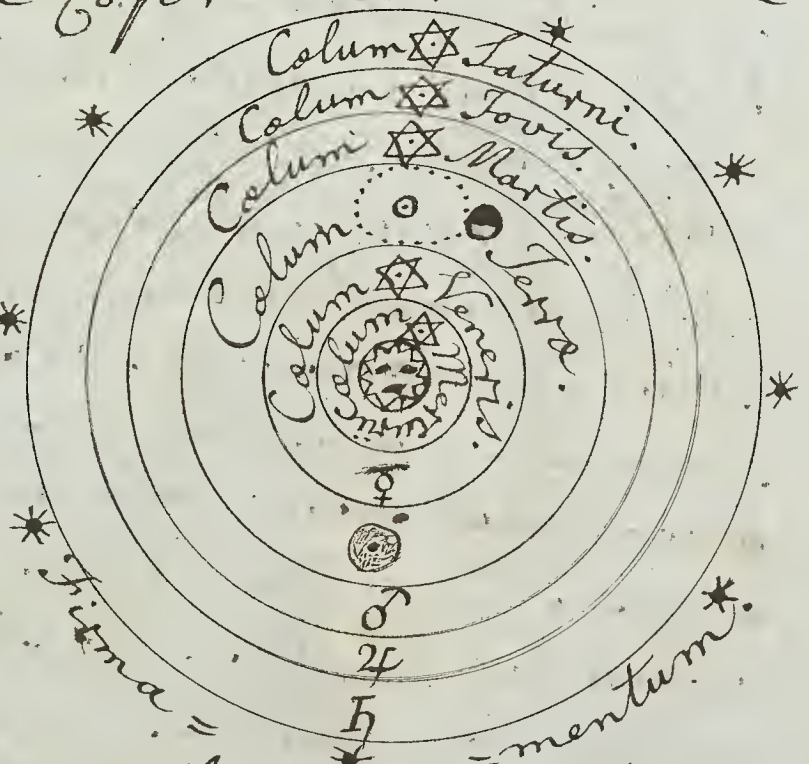 Cœlum Saturni.
Cœlum Jovis.
Cœlum Martis.
Cœlum Terræ.
Cœlum Veneris.
Cœlum Mercurii
♀
♂
♃
♄
Firma=
=mentum.